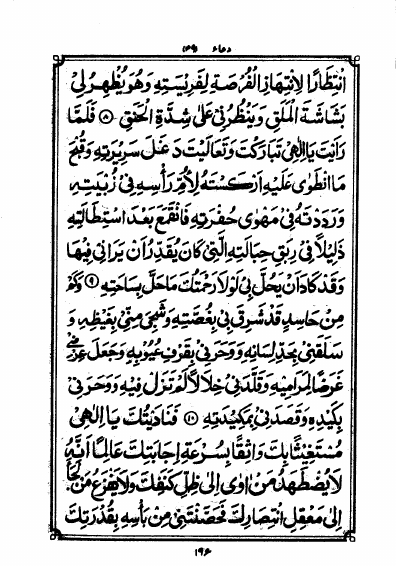 دعاء (۴۹)
اِنْتِظَارًا لِانْتِهَازِ الْفُرْصَةِ لِفَرِيسَتِهِ وَهُوَ يُظْهِرُ لِي
بَشَاشَةَ الْمَلَقِ وَيَنْظُرُنِي عَلَى شِدَّةِ الْحَنَقِ (۸) فَلَمَّا
رَأَيْتَ يَا اِلٰهِي تَبَارَكْتَ وَتَعَالَيْتَ دَغَلَ سَرِيرَتِهِ وَقُبْحَ
مَا انْطَوٰى عَلَيْهِ اَرْكَسْتَهُ لِاُمِّ رَأْسِهِ فِي زُبْيَتِهِ
وَرَدَدْتَهُ فِي مَهْوٰى حُفْرَتِهِ فَانْقَمَعَ بَعْدَ اسْتِطَالَتِهِ
ذَلِيلًا فِي رِبَقِ حِبَالَتِهِ الَّتِي كَانَ يُقَدِّرُ اَنْ يَرَانِي فِيهَا
وَقَدْ كَادَ اَنْ يَحُلَّ بِي لَوْلَا رَحْمَتُكَ مَا حَلَّ بِسَاحَتِهِ (۹) وَكَمْ
مِنْ حَاسِدٍ قَدْ شَرِقَ بِي بِغُصَّتِهِ وَشَجِيَ مِنِّي بِغَيْظِهِ وَ
سَلَقَنِي بِحَدِّ لِسَانِهِ وَوَحَرَنِي بِقَرْفِ عُيُوبِهِ وَجَعَلَ عِرْضِي
غَرَضًا لِمَرَامِيهِ وَقَلَّدَنِي خِلَالًا لَمْ تَزَلْ فِيهِ وَوَحَرَنِي
بِكَيْدِهِ وَقَصَدَنِي بِمَكِيدَتِهِ (۱۰) فَنَادَيْتُكَ يَا اِلٰهِي
مُسْتَغِيثًا بِكَ وَاثِقًا بِسُرْعَةِ اِجَابَتِكَ عَالِمًا اَنَّهُ
لَا يُضْطَهَدُ مَنْ اَوٰى اِلٰى ظِلِّ كَنَفِكَ وَلَا يَفْزَعُ مَنْ لَجَأَ
اِلٰى مَعْقِلِ انْتِصَارِكَ فَحَصَّنْتَنِي مِنْ بَأْسِهِ بِقُدْرَتِكَ
۱۹۶